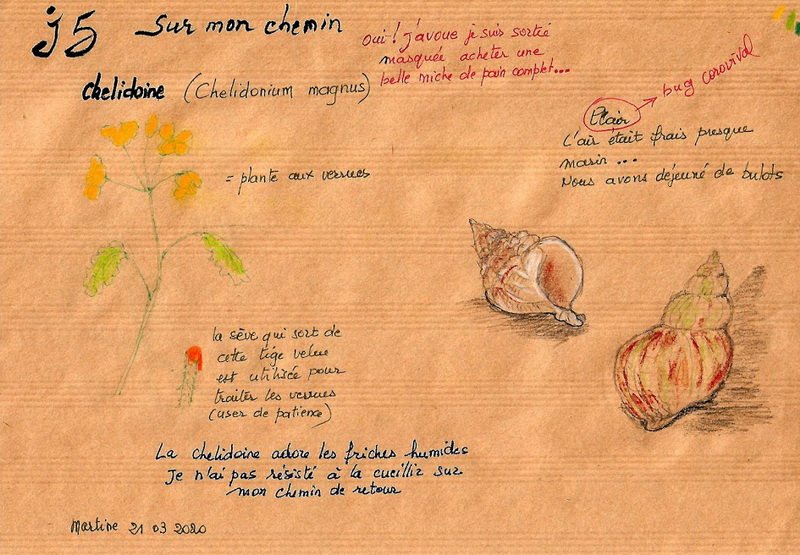 J5
Sur mon chemin
oui ! j'avoue je suis sortie
masquée acheter une
belle miche de pain complet...
chelidoine (Chelidonium magnus)
→ bug corovival
L'air était frais presque
marin ...
Nous avons déjeuné de bulots
= plante aux verrues
la sève qui sort de
cette tige velue
est utilisée pour
traiter les verrues
(user de patience)
La chelidoine adore les friches humides
Je n'ai pas résisté à la cueillir sur
mon chemin de retour
Martine 21 03 2020